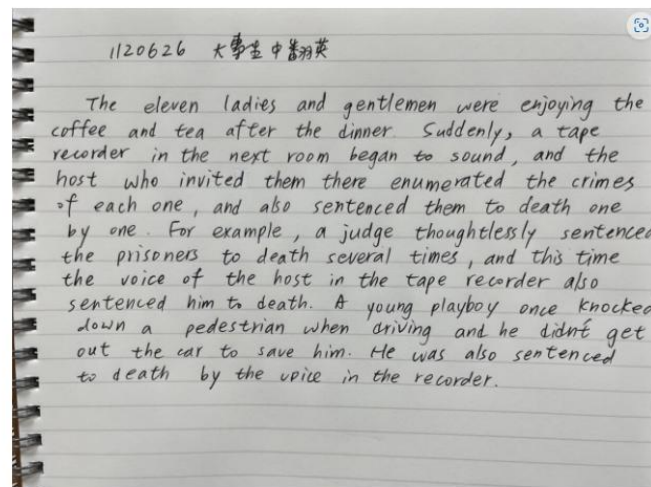 1120626 大事生中翻英
The eleven ladies and gentlemen were enjoying the
coffee and tea after the dinner. Suddenly, a tape
recorder in the next room began to sound, and the
host who invited them there enumerated the crimes
of each one, and also sentenced them to death one
by one. For example, a judge thoughtlessly sentenced
the prisoners to death several times, and this time
the voice of the host in the tape recorder also
sentenced him to death. A young playboy once knocked
down a pedestrian when driving and he didn't get
out the car to save him. He was also sentenced
to death by the voice in the recorder.